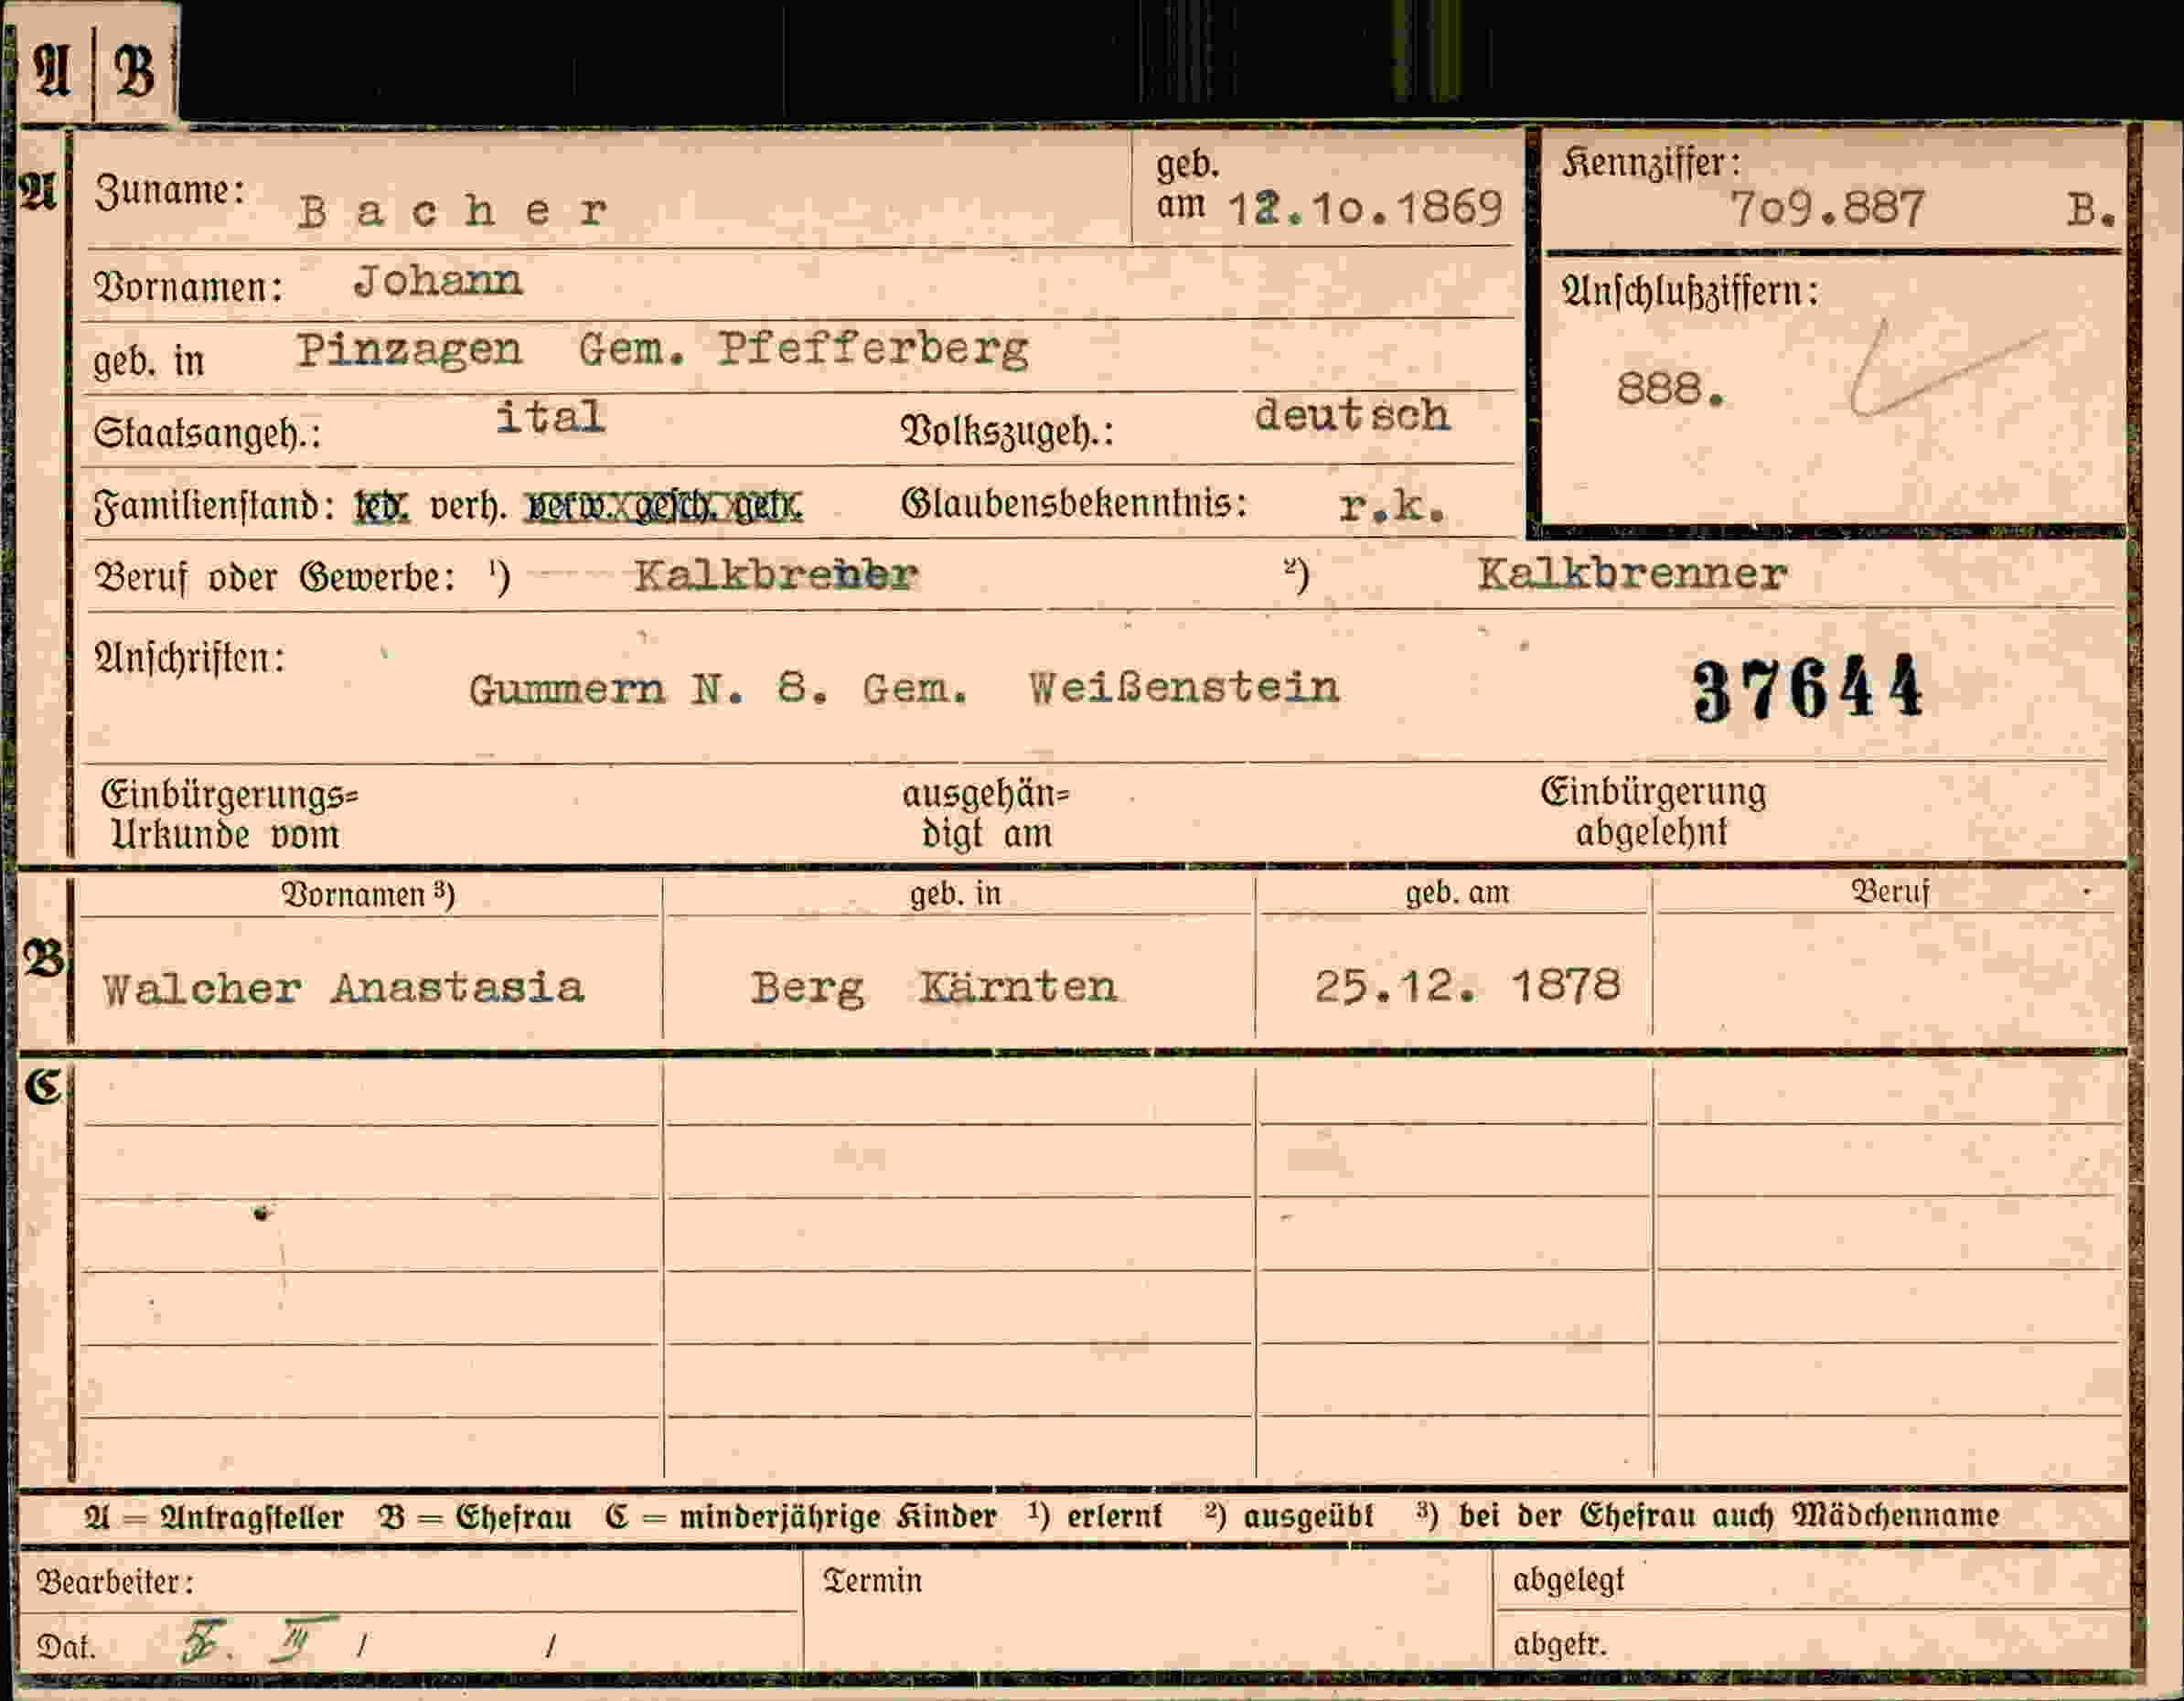 A | B
A
Zuname: Bacher
geb.
am 12.10.1869
Kennziffer:
709.887 B.
Vornamen: Johann
Anschlußziffern:
888.
geb. in Pinzagen Gem. Pfefferberg
Staatsangeh.: ital Volkszugeh.: deutsch
Familienstand: led. verh. verw. gesch. getr. Glaubensbekenntnis: r.k.
Beruf oder Gewerbe: ¹) Kalkbrenner ²) Kalkbrenner
Anschriften:
Gummern N. 8. Gem. Weißenstein 37644
Einbürgerungs= ausgehän= Einbürgerung
Urkunde vom digt am abgelehnt
Vornamen ³) geb. in geb. am Beruf
B
Walcher Anastasia Berg Kärnten 25.12. 1878
C
A = Antragsteller B = Ehefrau C = minderjährige Kinder ¹) erlernt ²) ausgeübt ³) bei der Ehefrau auch Mädchenname
Bearbeiter: Termin abgelegt
Dat. / / abgetr.